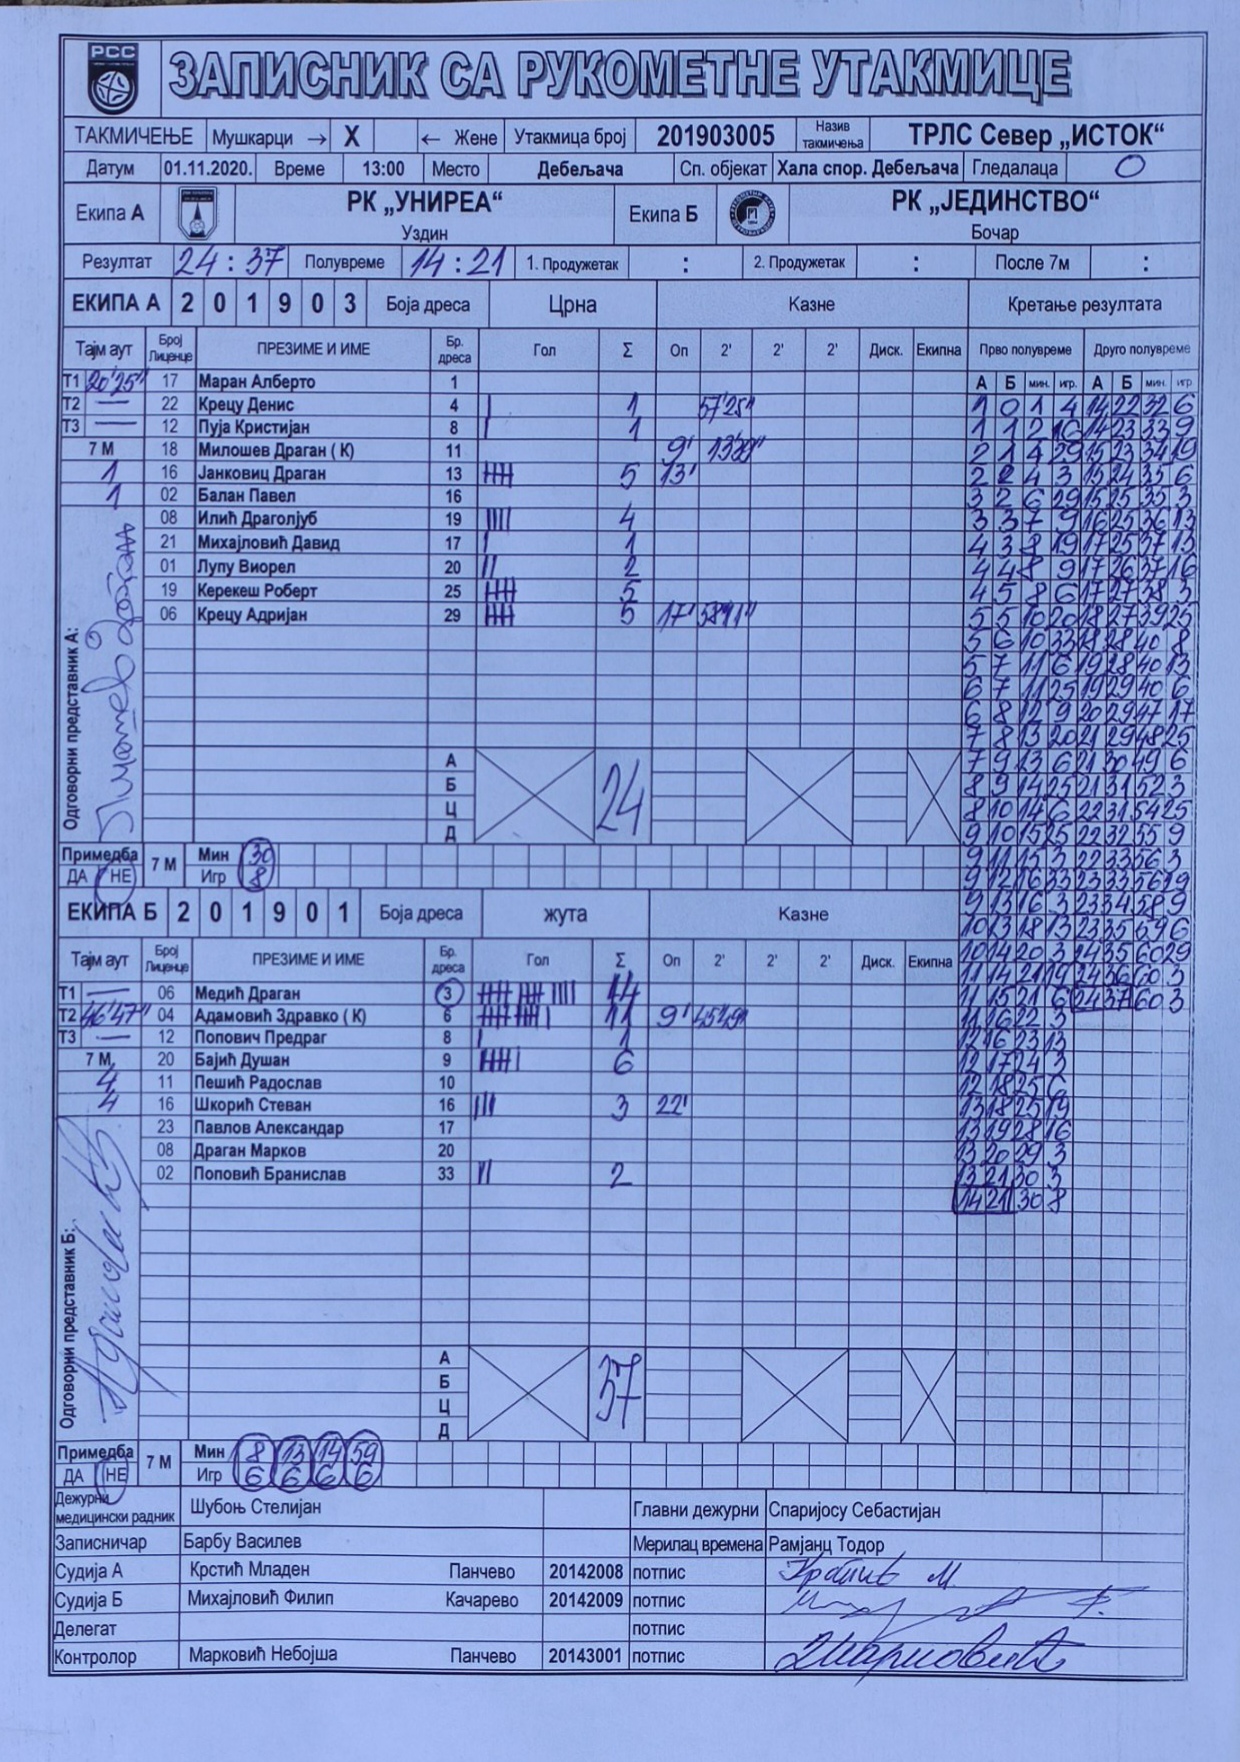 РСС
ЗАПИСНИК СА РУКОМЕТНЕ УТАКМИЦЕ
ТАКМИЧЕЊЕ Мушкарци → X ← Жене Утакмица број 201903005 Назив такмичења ТРЛС Север „ИСТОК“
Датум 01.11.2020. Време 13:00 Место Дебељача Сп. објекат Хала спор. Дебељача Гледалаца 0
Екипа А РК „УНИРЕА“ Екипа Б РК „ЈЕДИНСТВО“
Уздин Бочар
Резултат 24 : 37 Полувреме 14 : 21 1. Продужетак : 2. Продужетак : После 7м :
ЕКИПА А 2 0 1 9 0 3 Боја дреса Црна Казне Кретање резултата
Тајм аут Број Лиценце ПРЕЗИМЕ И ИМЕ Бр. дреса Гол Σ Оп 2' 2' 2' Диск. Екипна Прво полувреме Друго полувреме
Т1 20'25" 17 Маран Алберто 1 А Б мин. игр. А Б мин. игр
Т2 — 22 Крецу Денис 4 1 57'25" 1 0 1 4 14 22 32 6
Т3 — 12 Пуја Кристијан 8 1 1 1 2 16 14 23 33 9
7 М 18 Милошев Драган ( К) 11 9' 2 1 4 29 15 23 34 19
1 16 Јанковиц Драган 13 5 13' 2 2 4 3 15 24 35 6
1 02 Балан Павел 16 3 2 6 29 15 25 35 3
08 Илић Драгољуб 19 4 3 3 7 9 16 25 36 13
21 Михајловић Давид 17 1 4 3 8 19 17 25 37 13
01 Лупу Виорел 20 2 4 4 8 9 17 26 37 16
19 Керекеш Роберт 25 5 4 5 8 6 17 27 38 3
06 Крецу Адријан 29 5 17' 38'41" 5 5 10 20 18 27 39 25
5 6 10 33 18 28 40 8
5 7 11 6 19 28 40 13
6 7 11 25 19 29 40 6
6 8 12 9 20 29 47 17
7 8 13 20 21 29 48 25
А 7 9 13 6 21 30 49 6
Б 24 8 9 14 25 21 31 52 3
Ц 8 10 14 6 22 31 54 25
Д 9 10 15 25 22 32 55 9
Одговорни представник А:
Примедба 7 М Мин 30 9 11 15 3 22 33 56 3
ДА НЕ Игр 8 9 12 16 33 23 33 56 19
ЕКИПА Б 2 0 1 9 0 1 Боја дреса жута Казне 9 13 16 3 23 34 58 9
10 13 18 13 23 35 59 6
Тајм аут Број Лиценце ПРЕЗИМЕ И ИМЕ Бр. дреса Гол Σ Оп 2' 2' 2' Диск. Екипна 10 14 20 3 24 35 60 29
11 14 21 19 24 36 60 3
Т1 — 06 Медић Драган 3 14 11 15 21 6 24 37 60 3
Т2 46'47" 04 Адамовић Здравко ( К) 6 11 9' 45'49" 11 16 22 3
Т3 — 12 Попович Предраг 8 1 12 16 23 13
7 М 20 Бајић Душан 9 6 12 17 24 3
4 11 Пешић Радослав 10 12 18 25 6
4 16 Шкорић Стеван 16 3 22' 13 18 25 19
23 Павлов Александар 17 13 19 28 16
08 Драган Марков 20 13 20 29 3
02 Поповић Бранислав 33 2 13 21 30 3
14 21 30 8
А
Б 37
Ц
Д
Одговорни представник Б:
Примедба 7 М Мин 8 13 14 59
ДА НЕ Игр 6 6 6 6
Дежурни медицински радник Шубоњ Стелијан Главни дежурни Спаријосу Себастијан
Записничар Барбу Василев Мерилац времена Рамјанц Тодор
Судија А Крстић Младен Панчево 20142008 потпис
Судија Б Михајловић Филип Качарево 20142009 потпис
Делегат потпис
Контролор Марковић Небојша Панчево 20143001 потпис